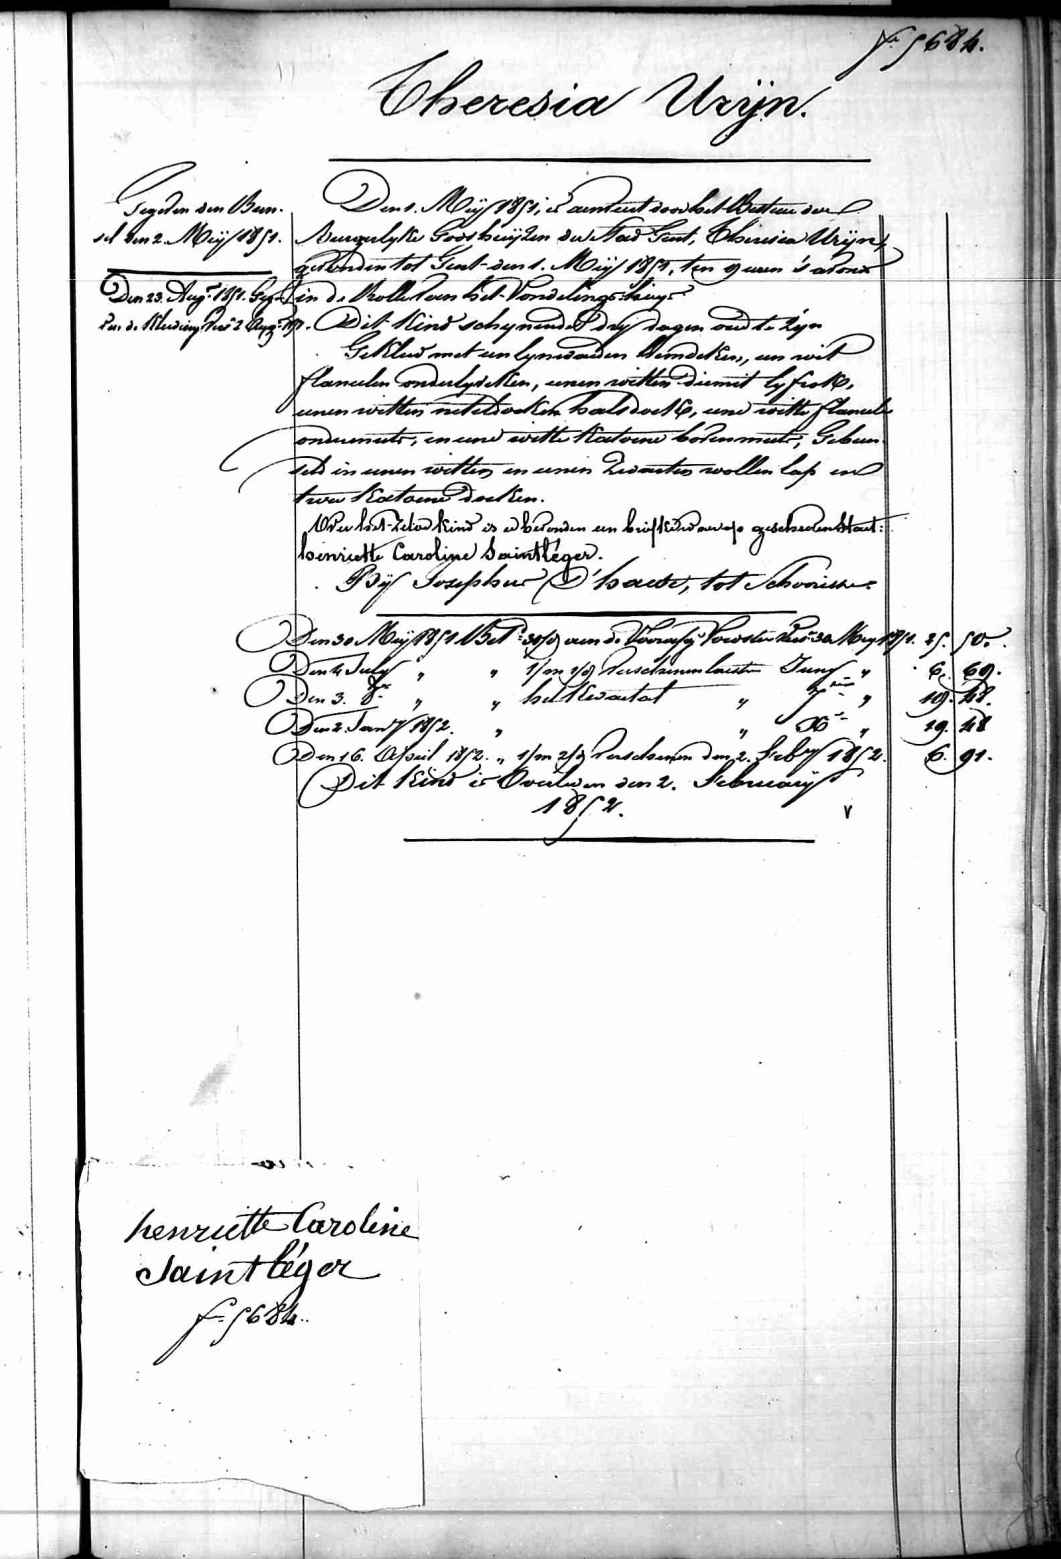 f° 5684.
Theresia Urÿn.
Gegeven den Bun-
sel den 2. Meÿ 1851.
Den 23. Aug.t 1851. Geg.
van de kleeding
Den 1. Meÿ 1851, is aenveert door het Bestuer der
Burgerlyke Godshuÿzen der stad Gent, Theresia Urÿn,
gevonden tot Gent den 1. Meÿ 1851, ten 9 uren 's avonds
in de Rolle van het Vondelings-huÿs
Dit kind schynende dry dagen oud te zyn
Gekleed met een lynwaeden hemdeken, een wit
flanelen onderlyveken, eenen witten diemit lyfrok,
eenen witten neteldoeken halsdoek, eene witte flanele
ondermuts, en eene witte katoene bovenmuts, Gebun-
seld in eenen witten en eenen zwarten wollen lap en
twee katoene doeken.
Over het zelve kind is er bevonden een briefken waer op geschreven staet:
henriette Caroline Saintléger.
Bÿ Josephus D'haese, tot Schoorisse
Den 30 Meÿ 1851 Bet. aen de Voorzorg 30 Meÿ 1851. 25. 50.
Den 4 July " " 1/m verschenen laesten Juny " 6. 69.
Den 3. 8.re " " het kwartal " 7.bre " 19. 48.
Den 2. Janÿ 1852. " " X.re " 19. 48
Den 16. April 1852. " 1/m 2/d verschenen den 2. Febÿ 1852. 6. 91.
Dit kind is Overleden den 2. Februarÿ
1852.
henriette Caroline
Saintléger
f° 5684.